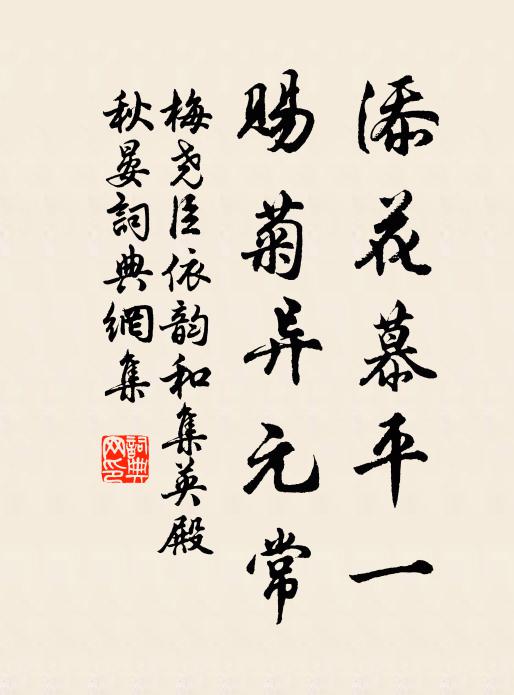 添花慕平一
赐菊异元常
梅尧臣依韵和集英殿
秋晏詞典網集
詞典网印